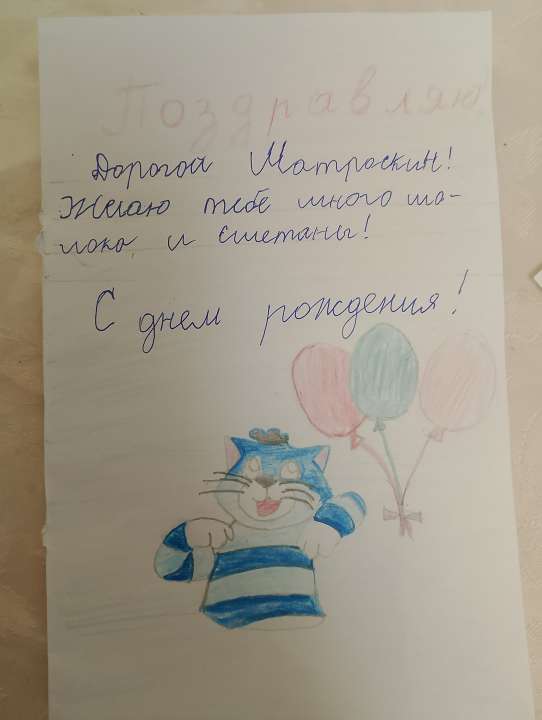 Поздравляю
Дорогой Матроскин!
Желаю тебе много мо-
лока и сметаны!
С днем рождения!